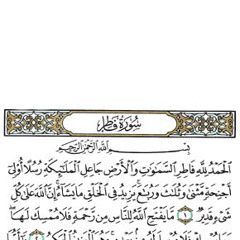 سُورَةُ فَاطِرٍ
بِسْمِ ٱللَّهِ ٱلرَّحْمَٰنِ ٱلرَّحِيمِ
ٱلْحَمْدُ لِلَّهِ فَاطِرِ ٱلسَّمَٰوَٰتِ وَٱلْأَرْضِ جَاعِلِ ٱلْمَلَٰٓئِكَةِ رُسُلًا أُو۟لِىٓ
أَجْنِحَةٍ مَّثْنَىٰ وَثُلَٰثَ وَرُبَٰعَ يَزِيدُ فِى ٱلْخَلْقِ مَا يَشَآءُ إِنَّ ٱللَّهَ عَلَىٰ كُلِّ
شَىْءٍ قَدِيرٌ ١ مَّا يَفْتَحِ ٱللَّهُ لِلنَّاسِ مِن رَّحْمَةٍ فَلَا مُمْسِكَ لَهَا